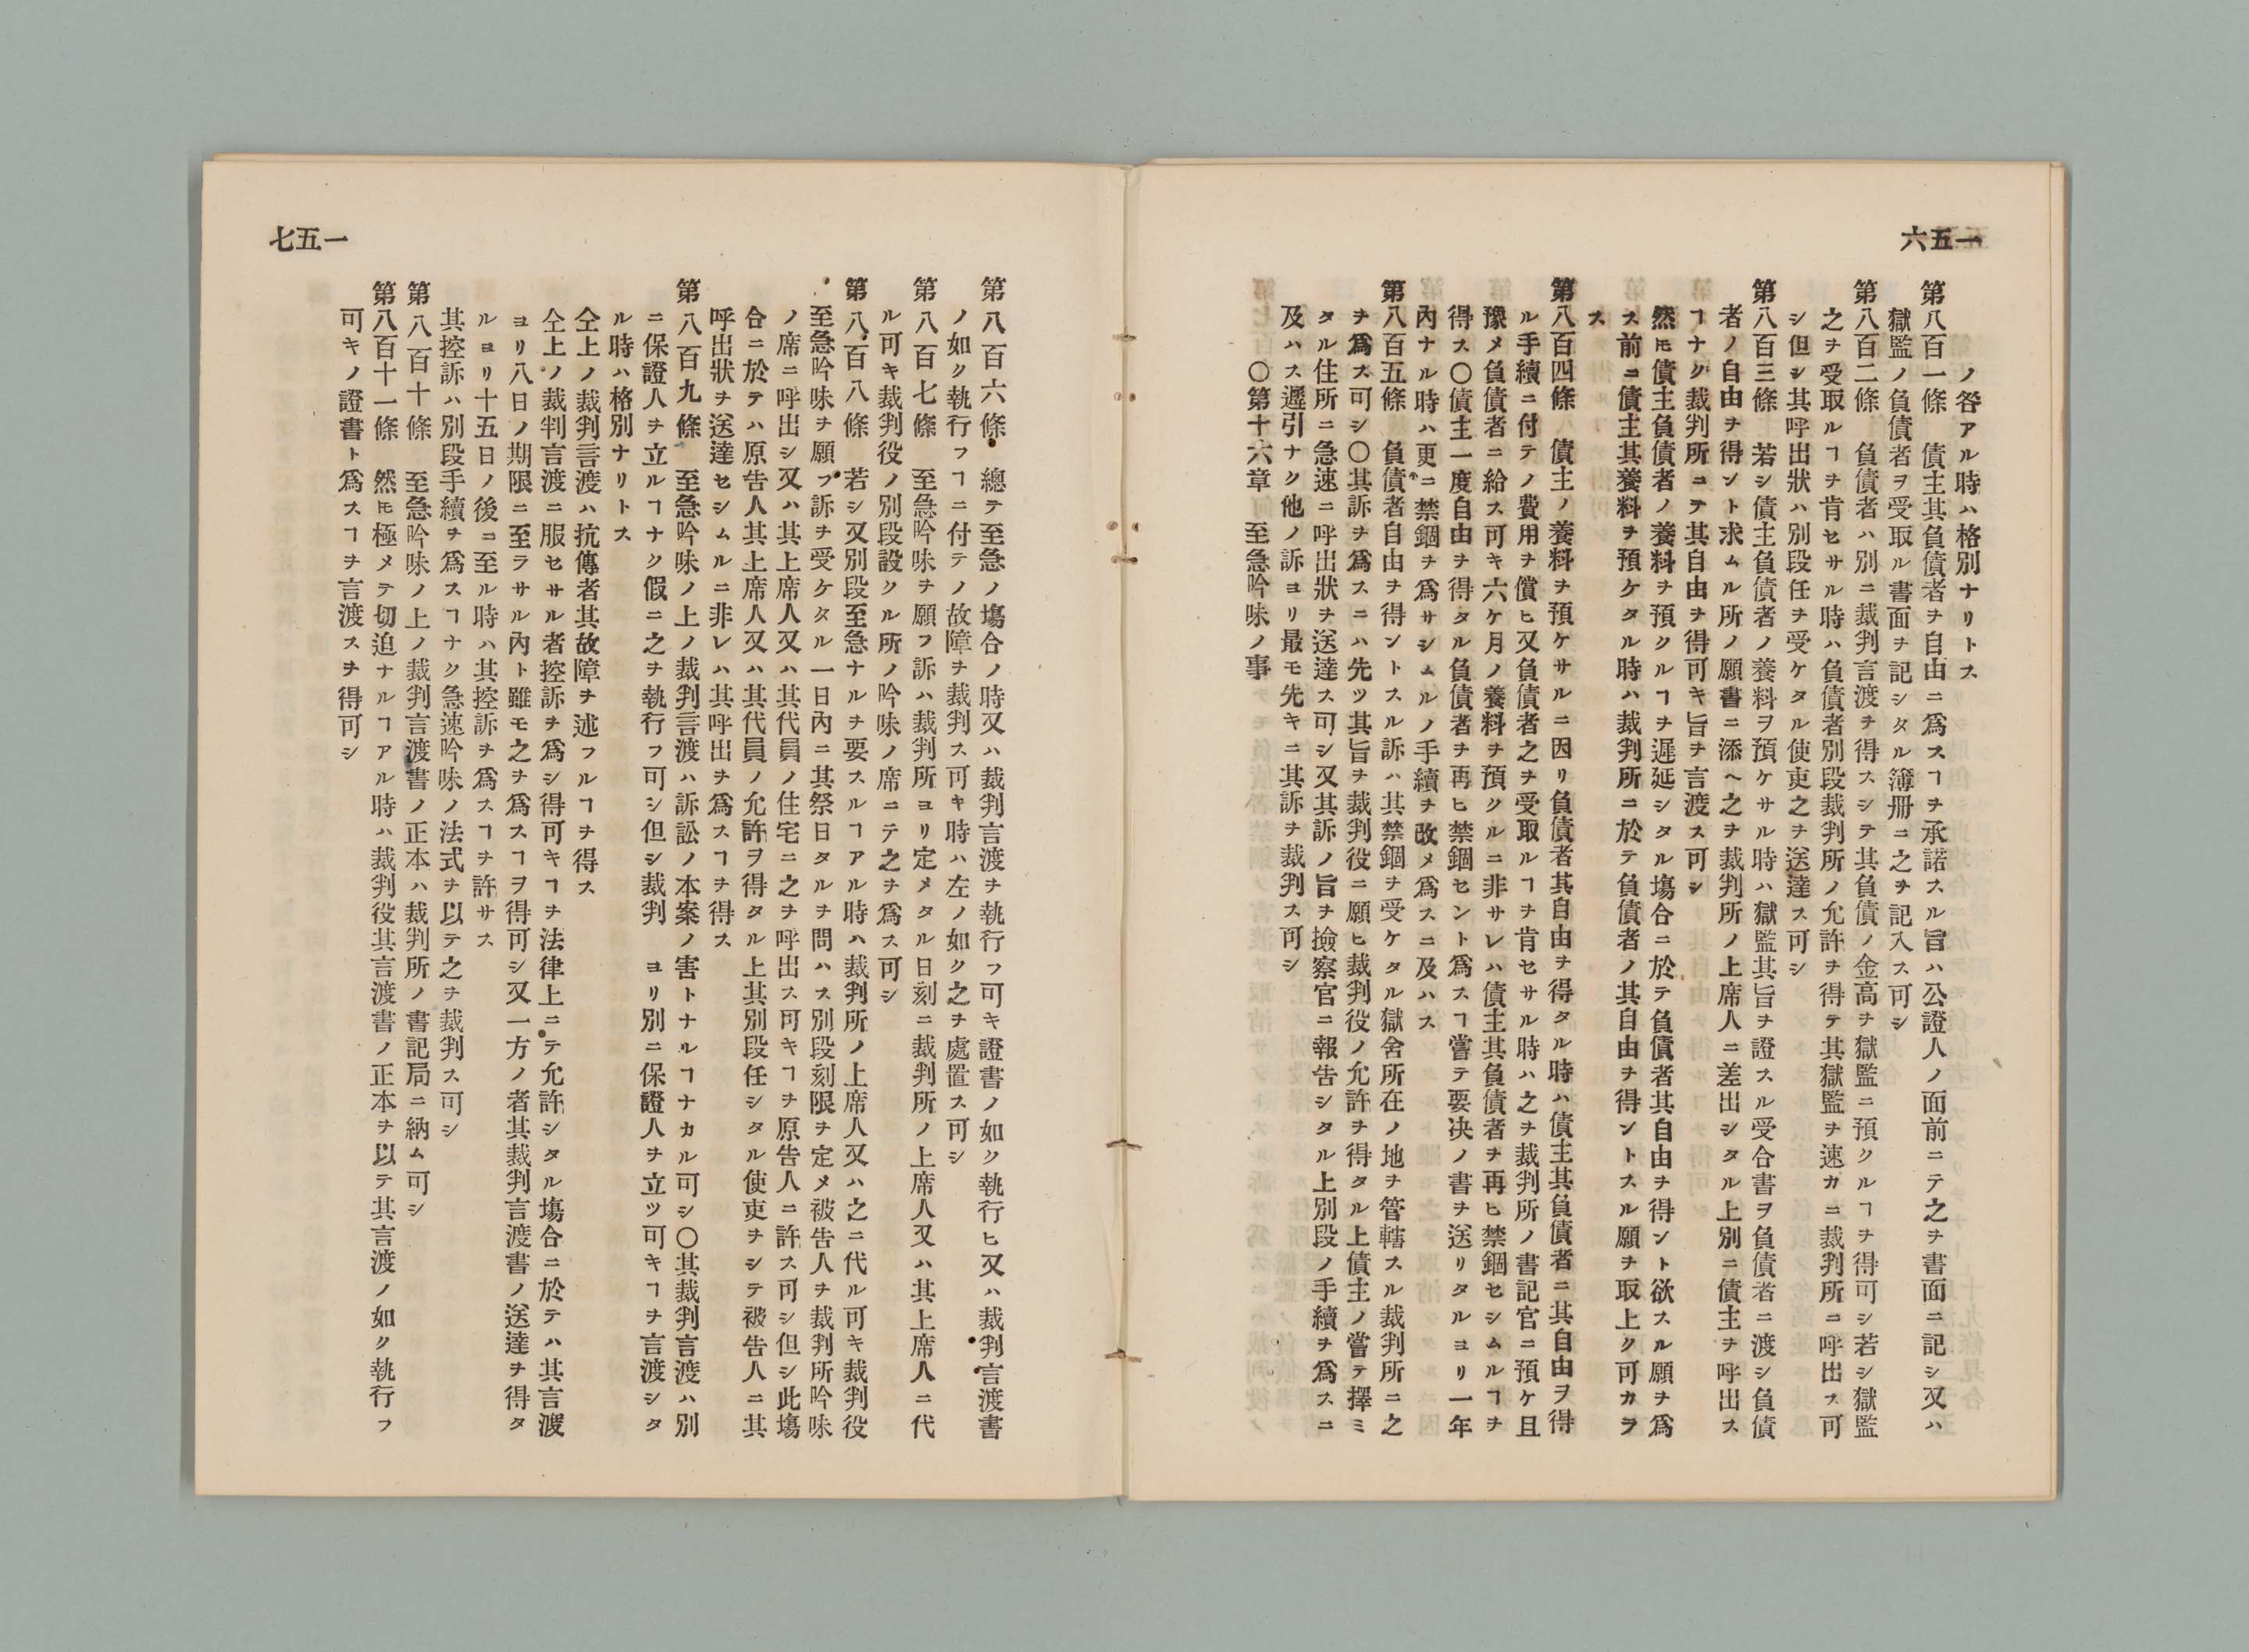 一五六
ノ咎アル時ハ格別ナリトス
第八百一條　債主其負債者ヲ自由ニ爲スヿヲ承諾スル旨ハ公證人ノ面前ニテ之ヲ書面ニ記シ又ハ
獄監ノ負債者ヲ受取ル書面ヲ記シタル簿冊ニ之ヲ記入ス可シ
第八百二條　負債者ハ別ニ裁判言渡ヲ得スシテ其負債ノ金高ヲ獄監ニ預クルヿヲ得可シ若シ獄監
之ヲ受取ルヿヲ肯セサル時ハ負債者別段裁判所ノ允許ヲ得テ其獄監ヲ速カニ裁判所ニ呼出ス可
シ但シ其呼出狀ハ別段任ヲ受ケタル使吏之ヲ送達ス可シ
第八百三條　若シ債主負債者ノ養料ヲ預ケサル時ハ獄監其旨ヲ證スル受合書ヲ負債者ニ渡シ負債
者ノ自由ヲ得ント求ムル所ノ願書ニ添ヘ之ヲ裁判所ノ上席人ニ差出シタル上別ニ債主ヲ呼出ス
ヿナク裁判所ニテ其自由ヲ得可キ旨ヲ言渡ス可シ
然𪜈債主負債者ノ養料ヲ預クルヿヲ遲延シタル塲合ニ於テ負債者其自由ヲ得ント欲スル願ヲ爲
ス前ニ債主其養料ヲ預ケタル時ハ裁判所ニ於テ負債者ノ其自由ヲ得ントスル願ヲ取上ク可カラ
ス
第八百四條　債主ノ養料ヲ預ケサルニ因リ負債者其自由ヲ得タル時ハ債主其負債者ニ其自由ヲ得
ル手續ニ付テノ費用ヲ償ヒ又負債者之ヲ受取ルヿヲ肯セサル時ハ之ヲ裁判所ノ書記官ニ預ケ且
豫メ負債者ニ給ス可キ六ケ月ノ養料ヲ預クルニ非サレハ債主其負債者ヲ再ヒ禁錮セシムルヿヲ
得ス〇債主一度自由ヲ得タル負債者ヲ再ヒ禁錮セント爲スヿ嘗テ要决ノ書ヲ送リタルヨリ一年
內ナル時ハ更ニ禁錮ヲ爲サシムルノ手續ヲ改メ爲スニ及ハス
第八百五條　負債者自由ヲ得ントスル訴ハ其禁錮ヲ受ケタル獄舍所在ノ地ヲ管轄スル裁判所ニ之
ヲ爲ス可シ〇其訴ヲ爲スニハ先ツ其旨ヲ裁判役ニ願ヒ裁判役ノ允許ヲ得タル上債主ノ嘗テ擇ミ
タル住所ニ急速ニ呼出狀ヲ送達ス可シ又其訴ノ旨ヲ撿察官ニ報告シタル上別段ノ手續ヲ爲スニ
及ハス遲引ナク他ノ訴ヨリ最モ先キニ其訴ヲ裁判ス可シ
〇第十六章　至急吟味ノ事
一五七
第八百六條　總テ至急ノ塲合ノ時又ハ裁判言渡ヲ執行フ可キ證書ノ如ク執行ヒ又ハ裁判言渡書
ノ如ク執行フヿニ付テノ故障ヲ裁判ス可キ時ハ左ノ如ク之ヲ處置ス可シ
第八百七條　至急吟味ヲ願フ訴ハ裁判所ヨリ定メタル日刻ニ裁判所ノ上席人又ハ其上席人ニ代
ル可キ裁判役ノ別段設クル所ノ吟味ノ席ニテ之ヲ爲ス可シ
第八百八條　若シ又別段至急ナルヲ要スルヿアル時ハ裁判所ノ上席人又ハ之ニ代ル可キ裁判役
至急吟味ヲ願フ訴ヲ受ケタル一日內ニ其祭日タルヲ問ハス別段刻限ヲ定メ被告人ヲ裁判所吟味
ノ席ニ呼出シ又ハ其上席人又ハ其代員ノ住宅ニ之ヲ呼出ス可キヿヲ原告人ニ許ス可シ但シ此塲
合ニ於テハ原告人其上席人又ハ其代員ノ允許ヲ得タル上其別段任シタル使吏ヲシテ被告人ニ其
呼出狀ヲ送達セシムルニ非レハ其呼出ヲ爲スヿヲ得ス
第八百九條　至急吟味ノ上ノ裁判言渡ハ訴訟ノ本案ノ害トナルヿナカル可シ〇其裁判言渡ハ別
ニ保證人ヲ立ルヿナク假ニ之ヲ執行フ可シ但シ裁判　ヨリ別ニ保證人ヲ立ツ可キヿヲ言渡シタ
ル時ハ格別ナリトス
仝上ノ裁判言渡ハ抗傳者其故障ヲ述フルヿヲ得ス
仝上ノ裁判言渡ニ服セサル者控訴ヲ爲シ得可キヿヲ法律上ニテ允許シタル塲合ニ於テハ其言渡
ヨリ八日ノ期限ニ至ラサル內ト雖モ之ヲ爲スヿヲ得可シ又一方ノ者其裁判言渡書ノ送達ヲ得タ
ルヨリ十五日ノ後ニ至ル時ハ其控訴ヲ爲スヿヲ許サス
其控訴ハ別段手續ヲ爲スヿナク急速吟味ノ法式ヲ以テ之ヲ裁判ス可シ
第八百十條　至急吟味ノ上ノ裁判言渡書ノ正本ハ裁判所ノ書記局ニ納ム可シ
第八百十一條　然𪜈極メテ切迫ナルヿアル時ハ裁判役其言渡書ノ正本ヲ以テ其言渡ノ如ク執行フ
可キノ證書ト爲スヿヲ言渡スヲ得可シ